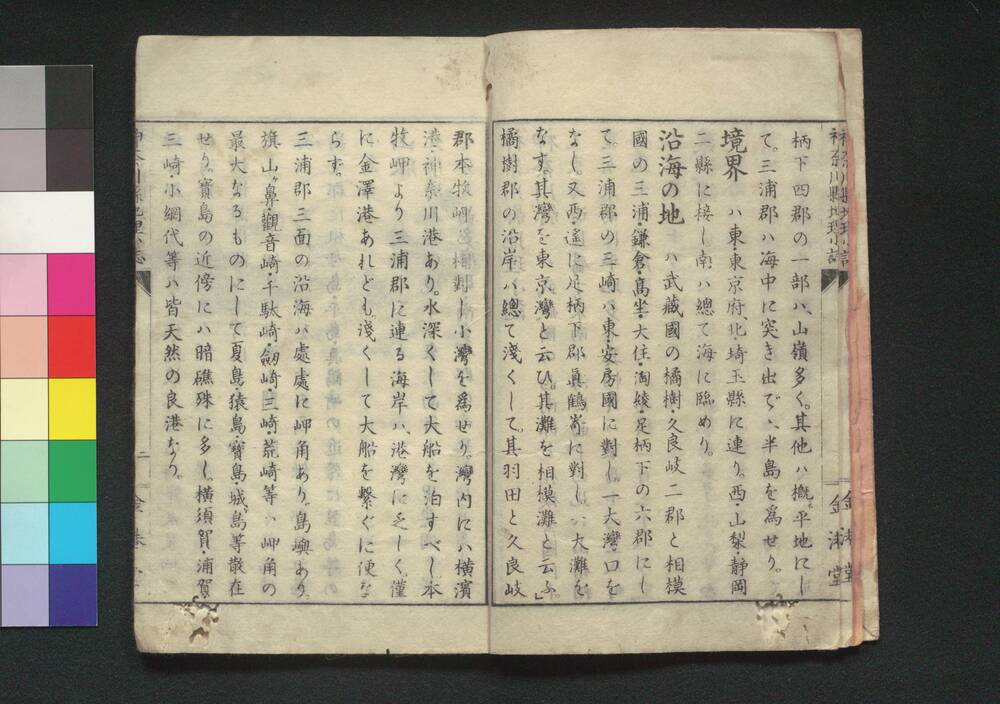 神奈川縣地理小誌
金港堂
柄下四郡の一部ハ、山嶺多く。其他ハ概平地にし
て。三浦郡ハ海中に突き出でゝ、半島を爲せり。
境界 ハ東・東京府、北・埼玉縣に連り。西・山梨・靜岡
二縣に接し南ハ總て海に臨めり。
沿海の地 ハ武藏國の橘樹・久良岐二郡と相模
國の三浦・鎌倉・高坐・大住・淘綾・足柄下の六郡にし
て。三浦郡の三崎ハ、東・安房國に對し。一大灣ノ口を
なし。又西遙に足柄下郡眞鶴嵜に對し、一大灘を
なす。其灣を東京灣と云ひ。其灘を相模灘と云ふ。」
橘樹郡の沿岸ハ總て淺くして。其羽田と久良岐
郡本牧岬
し小灣を爲せり。灣内にハ横濱
港・神奈川港あり。水深くして大船を泊すべし本
牧岬より三浦郡に連る海岸ハ、港灣に乏しく。僅
に金澤港あれども。淺くして大船を繫ぐに便な
らず。
三浦郡三面の沿海ハ處處に岬角あり。島嶼あり。
旗山ノ鼻・觀音崎・千駄崎・劔崎・三崎・荒崎等ハ岬角の
最大なるものにして夏島・猿島・寶島・城ヶ島等散在
せり。寶島の近傍にハ暗礁殊に多し。横須賀・浦賀・
三崎・小網代等ハ皆天然の良港なり。
二